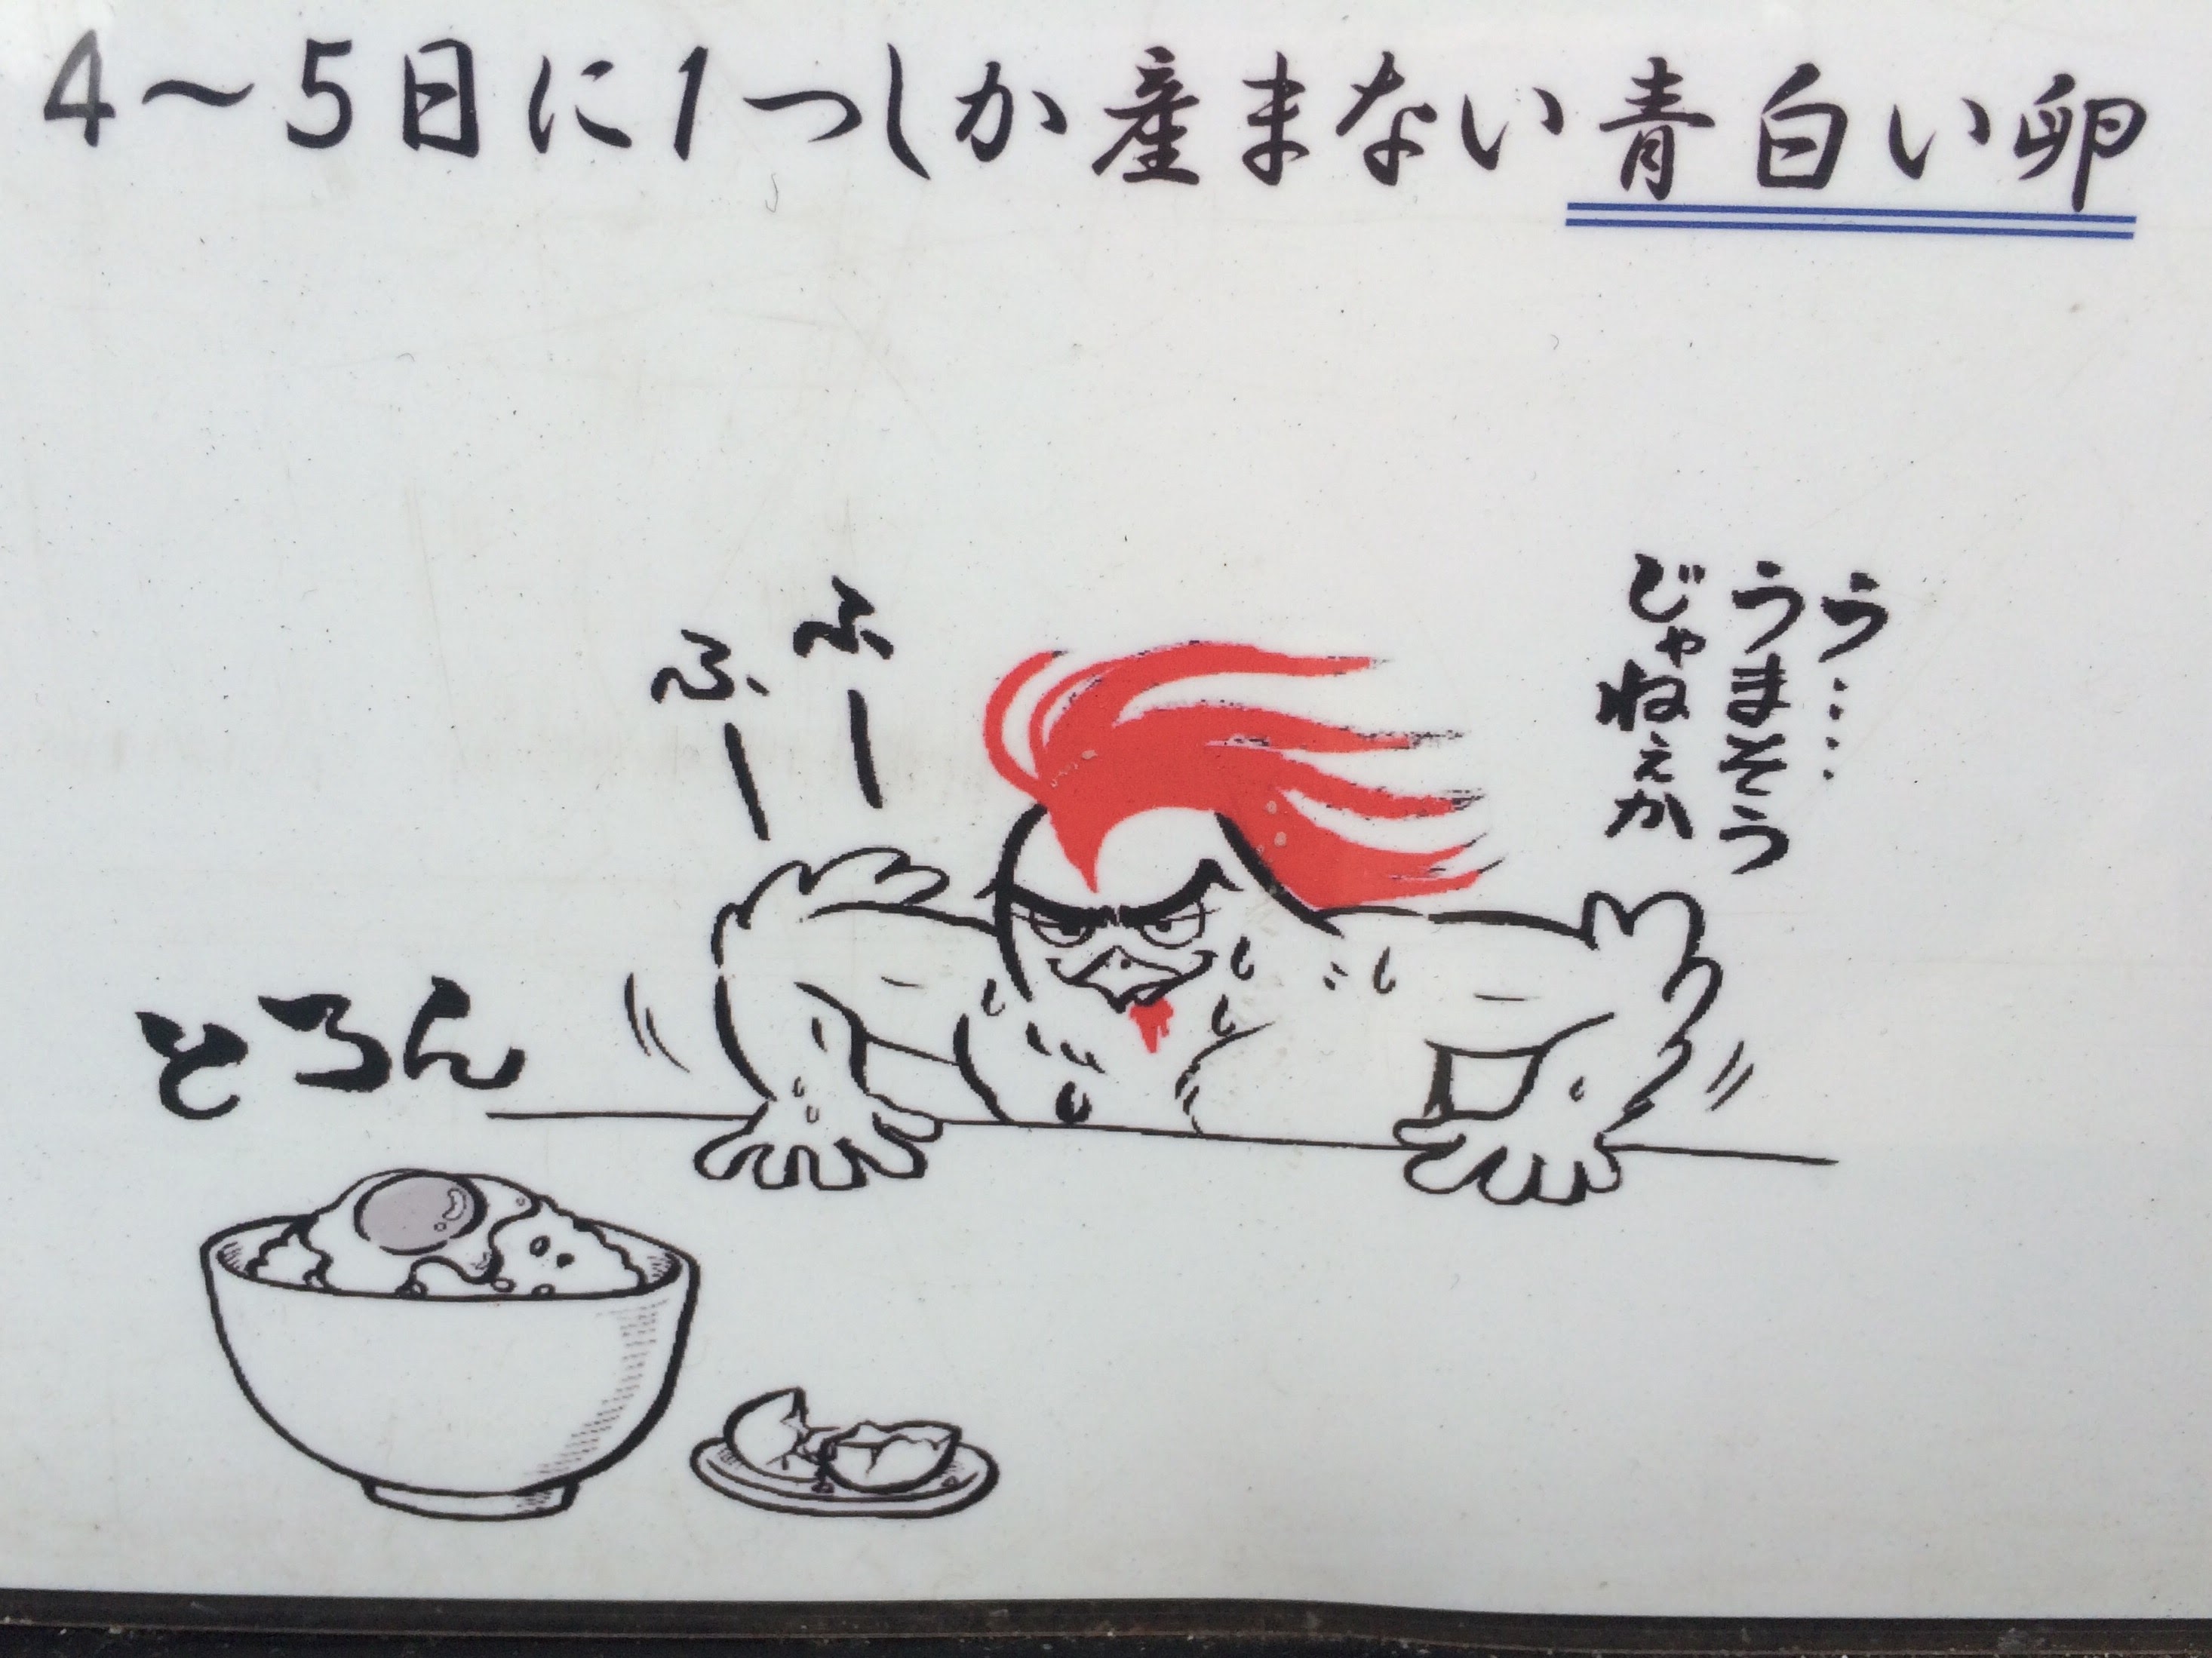 4～5日に1つしか産まない青白い卵
う……
うまそう
じゃねぇか
ふー
ふー
とろん